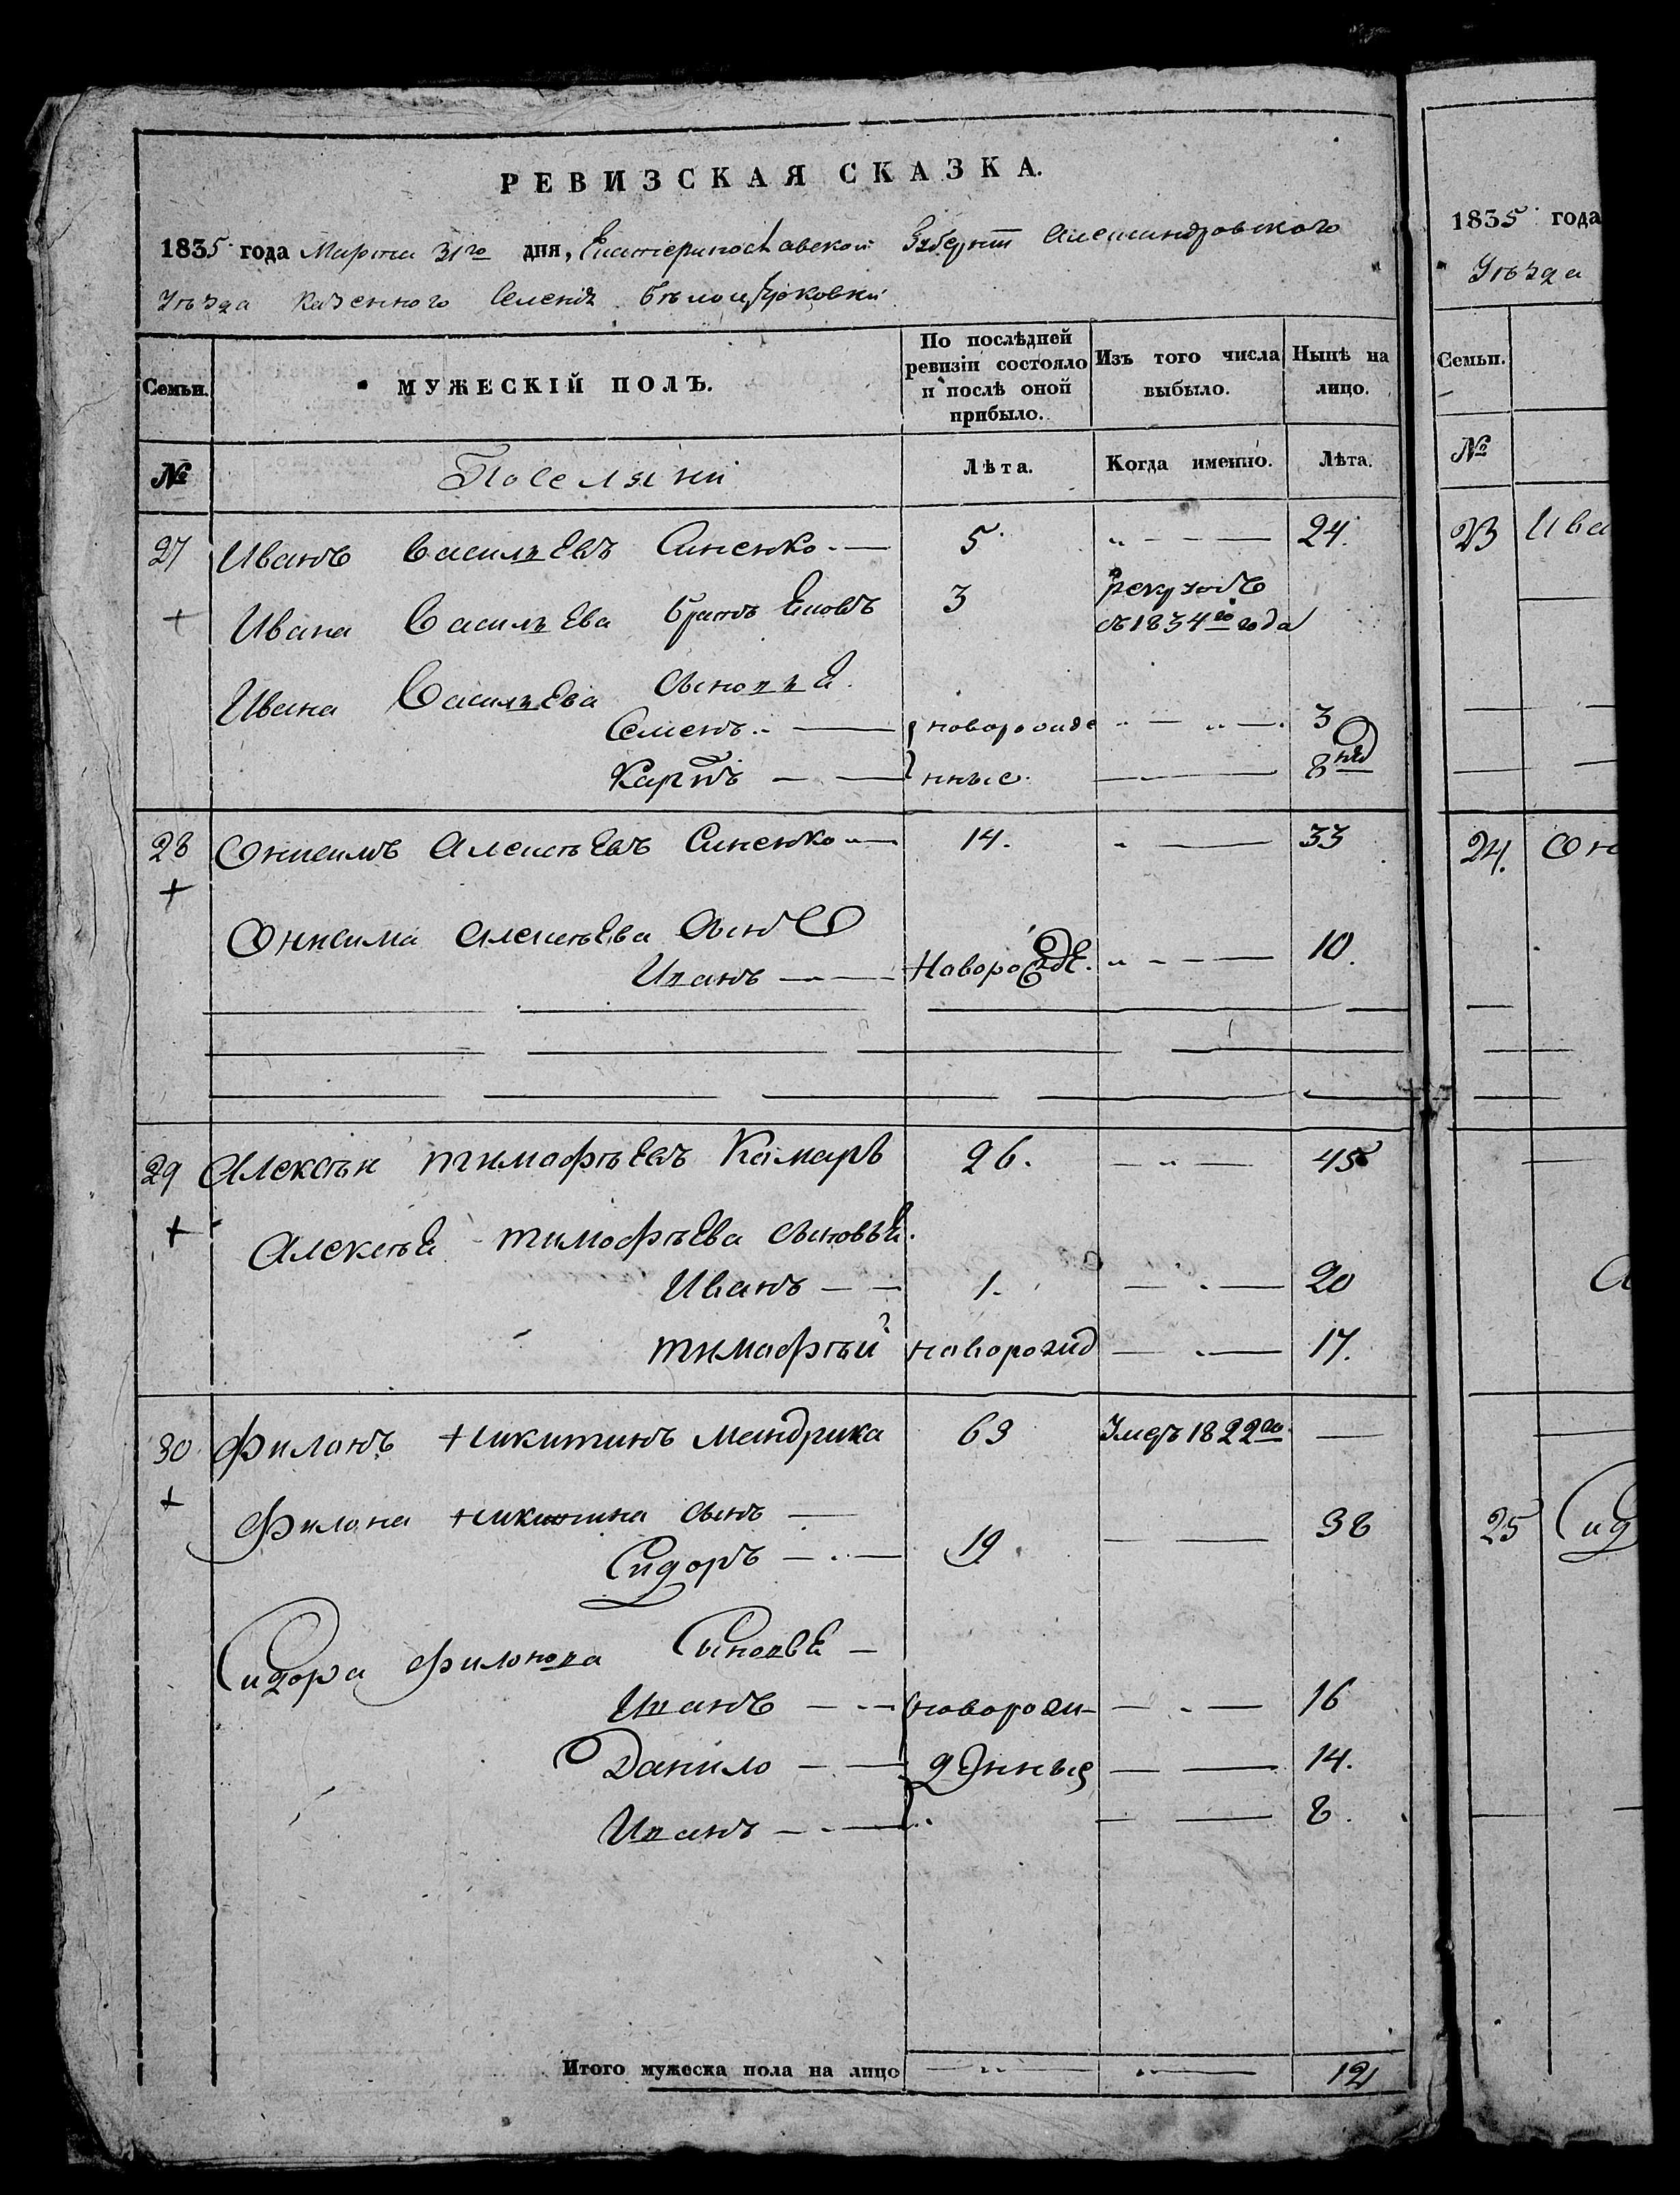 РЕВИЗСКАЯ СКАЗКА.
1835 года Марта 31го дня, Екатеринославской Губернiи Александровского
Уѣзда Казенного Селенiя Бѣлоцерковки
Семьи.
МУЖЕСКІЙ ПОЛЪ.
По послѣдней ревизіи состояло и послѣ оной прибыло.
Изъ того числа выбыло.
Нынѣ на лицо.
№
Поселяни
Лѣта.
Когда именно.
Лѣта.
27 Иванъ Васильевъ Синенко 5 24
Ивана Васильева братъ 3 рекрутъ
съ 1834го года
Ивана Васильева сыновья
Семенъ новорожде 3
Карпъ нные 8 нед
28 Онисимъ Алексѣевъ Синенко 14. 33
+
Онисима Алексѣева сынъ
Иванъ Новорожде. 10.
29 Алексѣи тимофѣевъ Камаръ 26. 45
+ Алексѣя тимофѣева сыновья.
Иванъ 1. 20
тимофѣй новорожд 17.
30 Филонъ Никитинъ Мандрика 63 Умеръ 1822го
+ Филона Никитина сынъ 38
Сидоръ 19
Сидора Филонова Сыновья
Иванъ новорож- 16
Данило денные 14.
Иванъ 8.
Итого мужеска пола на лицо 12
1835 года
Уѣзда
Семьи.
№
23 Ива
24. Он
25 Сид